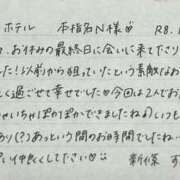 ホテル 本指名N様♡ R8.
お休みの最終日に会いに来てださり
した!以前から狙っていたという素敵なお
しく過ごせて幸せでした♡今回は2人でお
ゃいちゃぽかぽかできましたね♪いつも
あり(?)あっという間のお時間でしたね
ぜい仲良くしてださい♡
新條 す